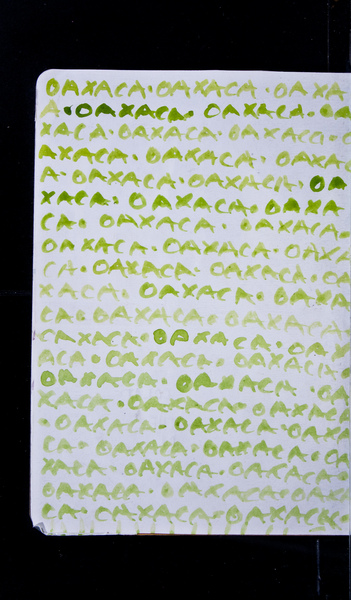 OAXACA·OAXACA·OAXA
A·OAXACA·OAXACA·OA
XACA·OAXACA·OAXACA·O
AXACA·OAXACA·OAXAC
A·OAXACA·OAXACA·OA
XACA·OAXACA·OAXA
CA·OAXACA·OAXACA·
OAXACA·OAXACA·OAXA
CA·OAXACA·OAXACA·OA
XACA·OAXACA·OAXA
CA·OAXACA·OAXACA
OAXACA·OAXACA·OAX
ACA·OAXACA·OAXACA
OAXACA·OAXACA·OA
XACA·OAXACA·OAXACA
·OAXACA·OAXACA·OA
CA·OAXACA·OAXACA·OA
XACA·OAXACA·OAXACA
OAXACA·OAXACA·OAXA
CA·OAXACA·OAXACA